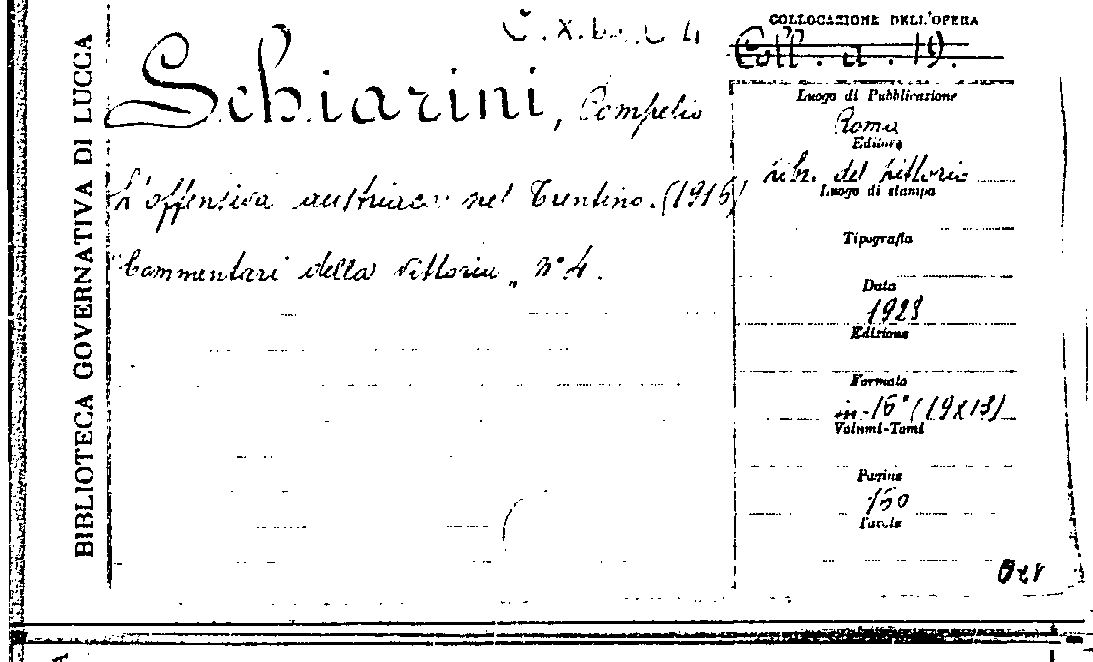 BIBLIOTECA GOVERNATIVA DI LUCCA
COLLOCAZIONE DELL'OPERA
Coll. a. 19.
Schiarini, Pompilio
L'offensiva austriaca nel Trentino. (1916)
"Commentari della Vittoria„ n° 4.
Luogo di Pubblicazione
Roma
Editore
Libr. del Littorio
Luogo di stampa
Tipografia
Data
1928
Edizione
Formato
in-16° (19x13)
Volumi-Tomi
Pagine
150
Tavole